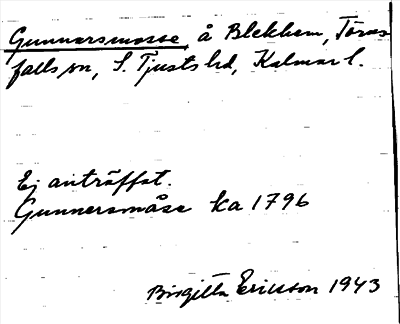 Gunnarsmosse å Blekhem, Törns
falls sn, S. Tjusts hd, Kalmar l.
Ej anträffat.
Gunnersmåse ka 1796
Birgitta Ericsson 1943